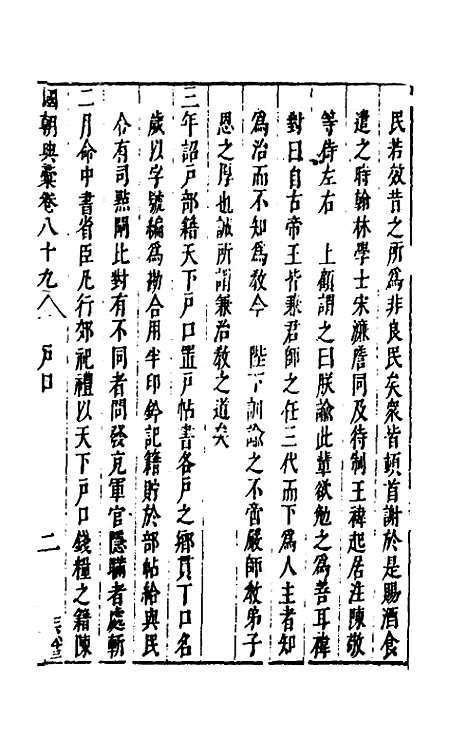 民若效昔之所為非良民矣衆皆頓首謝於是賜酒食
遣之時翰林學士宋濂詹同及待制王禕起居注陳敬
等侍左右　上顧謂之曰朕諭此輩欲勉之為善耳禕
對曰自古帝王皆兼君師之任三代而下為人主者知
為治而不知為教今　陛下訓諭之不啻嚴師教弟子
恩之厚也誠所謂兼治教之道矣
三年詔戶部籍天下戶口置戶帖書各戶之鄉貫丁口名
歲以字號編為勘合用半印鈐記籍貯於部帖給與民
仍有司點閘比對有不同者問發充軍官隱瞞者處斬
二月命中書省臣凡行郊祀禮以天下戶口錢糧之籍陳
國朝典彙卷八十九　戶口　二